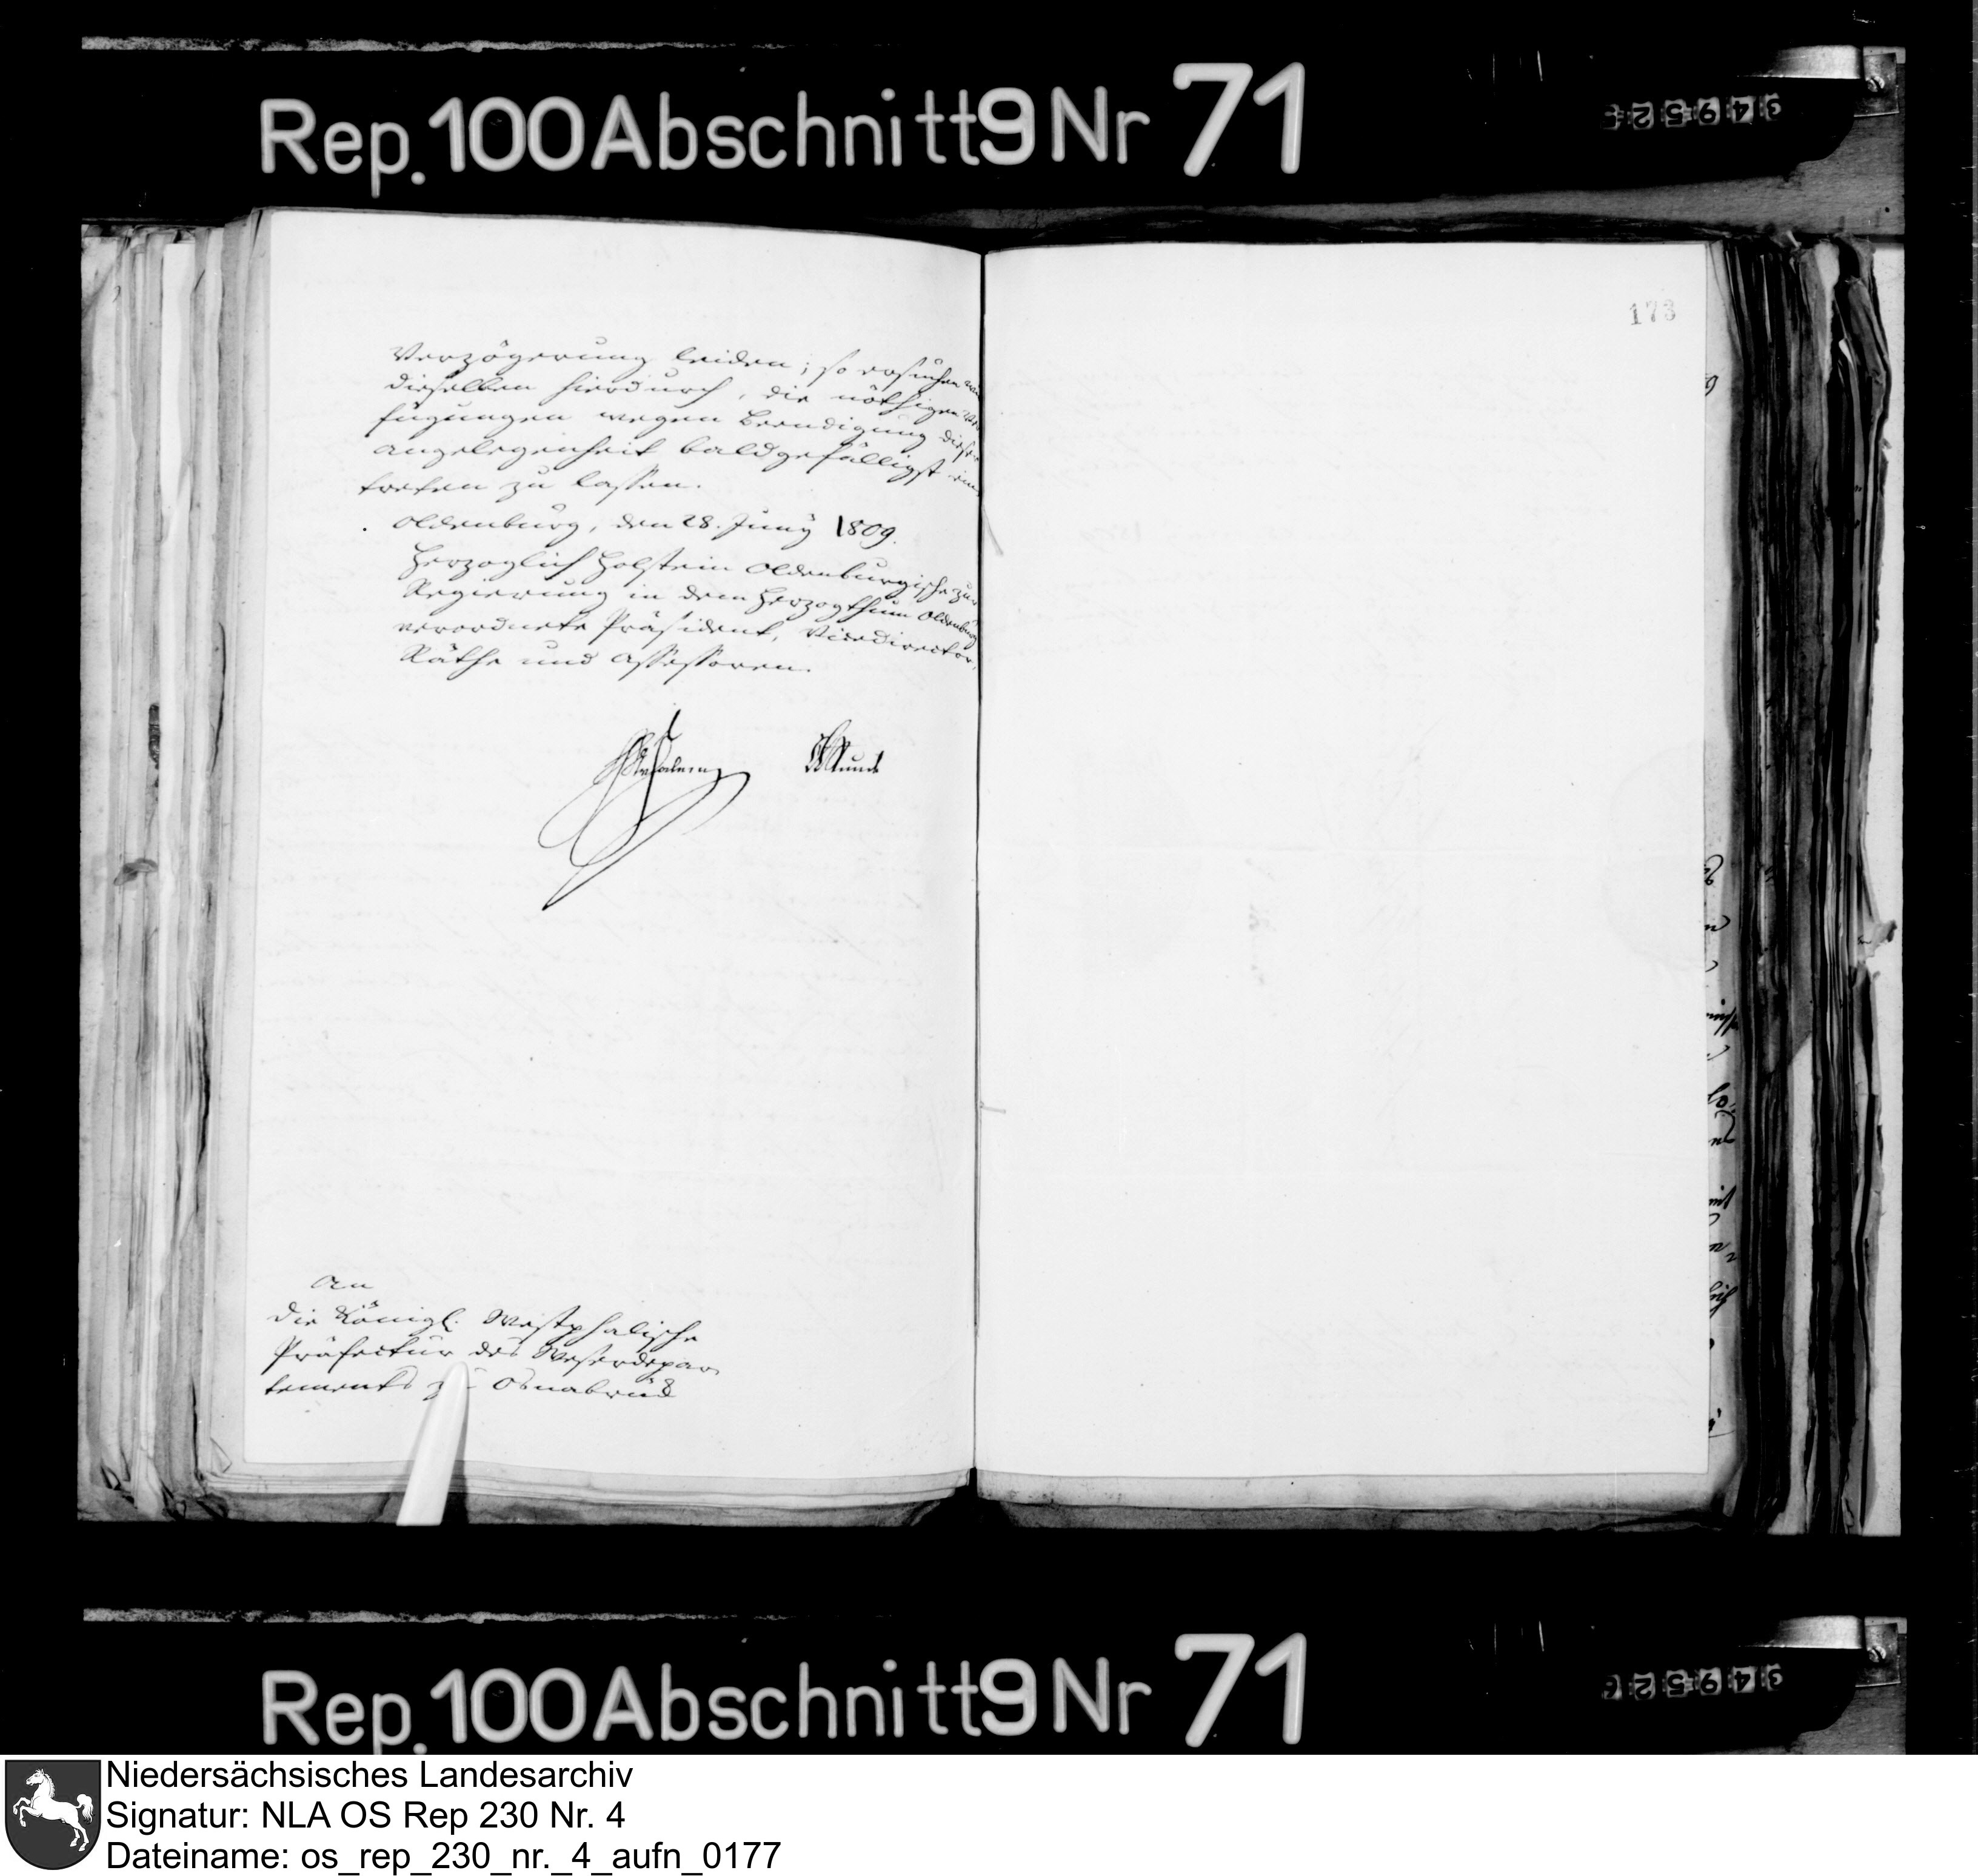 Rep. 100 Abschnitt 9 Nr 71
173
Verzögerung leiden; so ersuchen wir
dieselben hierdurch, die nöthigen Ver
fügungen wegen Beendigung dieser
Angelegenheit baldgefälligst ein
treten zu lassen.
Oldenburg, den 28. Juny 1809.
Herzoglich Holstein Oldenburgische zur
Regierung in dem Herzogthum Oldenburg
verordnete Präsident, Vicedirector,
Räthe und Assessoren.
Runde
An
die Königl. Westphälische
Präfectur des Weserdepar
tements zu Osnabrück
Rep. 100 Abschnitt 9 Nr 71
Niedersächsisches Landesarchiv
Signatur: NLA OS Rep 230 Nr. 4
Dateiname: os_rep_230_nr._4_aufn_0177